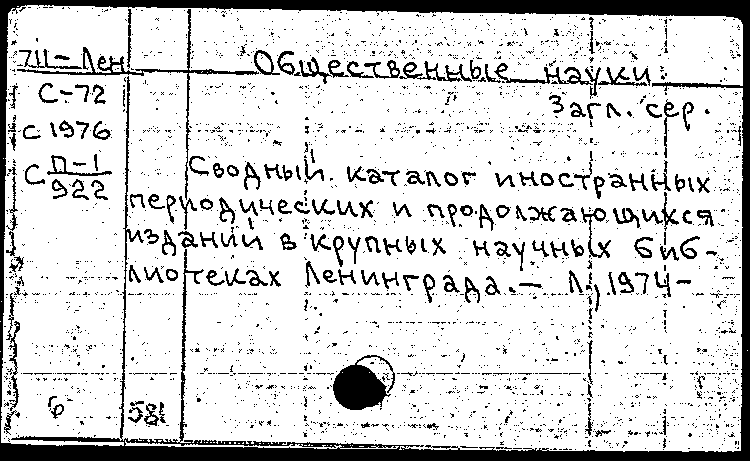 711-Лен
Общественные науки.
С-72
Загл. сер.
С 1976
С П-1
922
Сводный каталог иностранных
периодических и продолжающихся
изданий в крупных научных биб-
лиотеках Ленинграда. — Л., 1974-
6
581